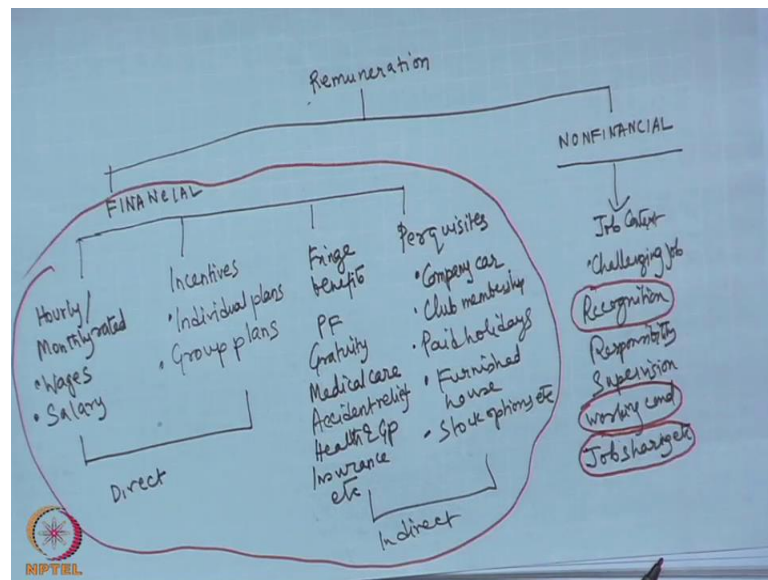 Remuneration
FINANCIAL
Hourly/
Monthly rated
• Wages
• Salary
Incentives
• Individual plans
• Group plans
Direct
Fringe
benefits
PF
Gratuity
Medical care
Accident relief
Health & Gp
Insurance
etc
Perquisites
• Company car
• Club membership
• Paid holidays
• Furnished
house
• Stock options etc
Indirect
NONFINANCIAL
Job Context
• Challenging Job
Recognition
Responsibility
Supervision
Working cond
Job sharing etc
NPTEL